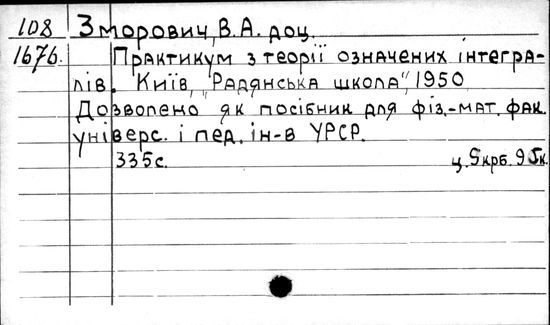 108 Зморович, В.А. доц.
1676. Практикум з теорії означених інтегра-
лів. Київ, "Радянська школа", 1950
Дозволено як посібник для фіз.-мат. фак.
універс. і пед. ін-в УРСР.
335с. ц. 9крб. 95к.